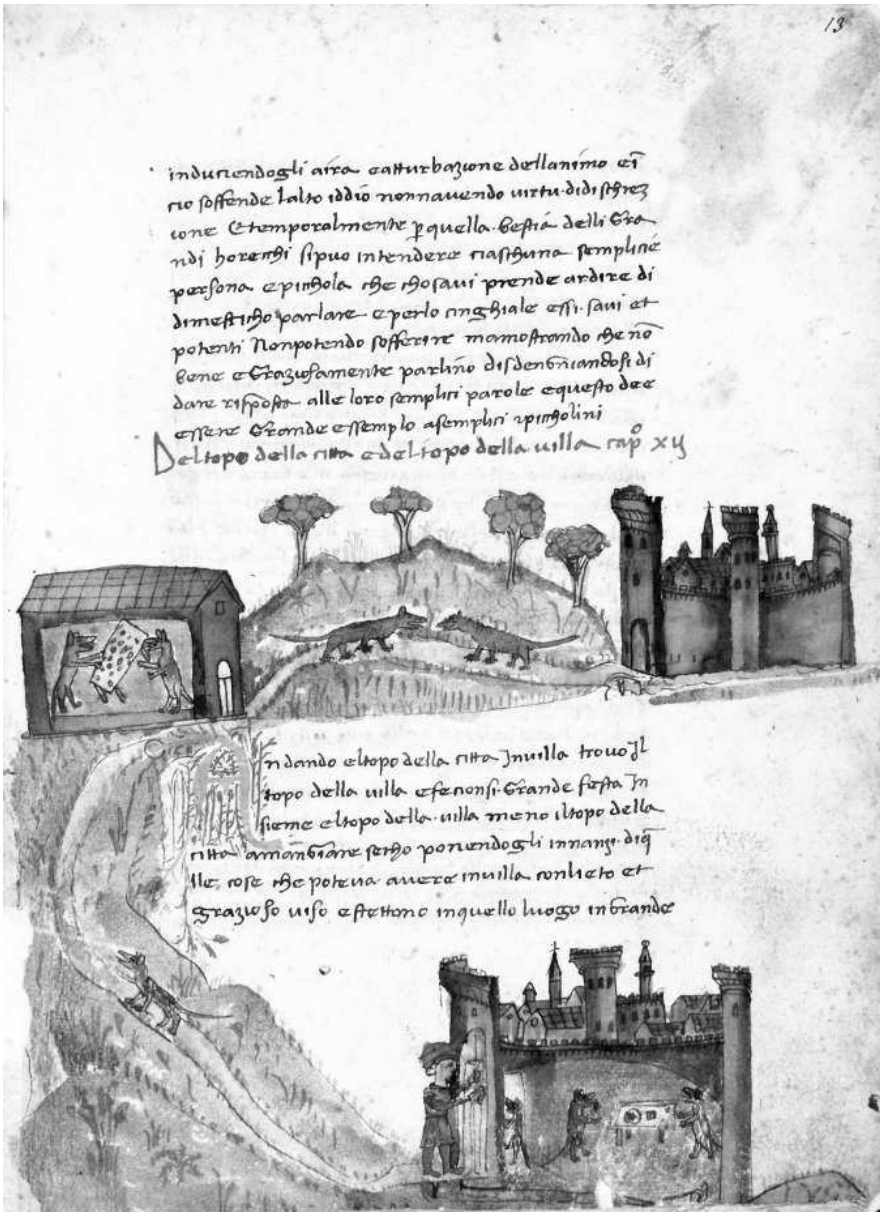 13
induciendogli aira eatturbazione dellanimo eī
cio soffende lalto iddio nonnavendo virtu. didischrez
ione Etemporalmente p̱quella. bestia delli Gra
ndi horecchi sipuo intendere ciaschuna semplicie
persona epichola che chosavi prende ardire di
dimesticho parlare eperlo cinghiale essi. savi et
potenti Nonpotendo sofferire mamostrando che nō
bene eGraziosamente parlino disdengniandosi di
dare risposta alle loro semplici parole equesto dee
essere Grande essemplo asemplici epiccholini
Deltopo della citta edeltopo della villa capo xij
ndando eltopo della citta Jnvilla trovo Jl
topo della villa efecionsi. Grande festa Jn
sieme eltopo della. villa meno iltopo della
citta amāngiare secho ponendogli innanzi. diq̄
lle, cose che poteva. avere invilla conlieto et
grazioso viso estettono inquello luogo inGrande